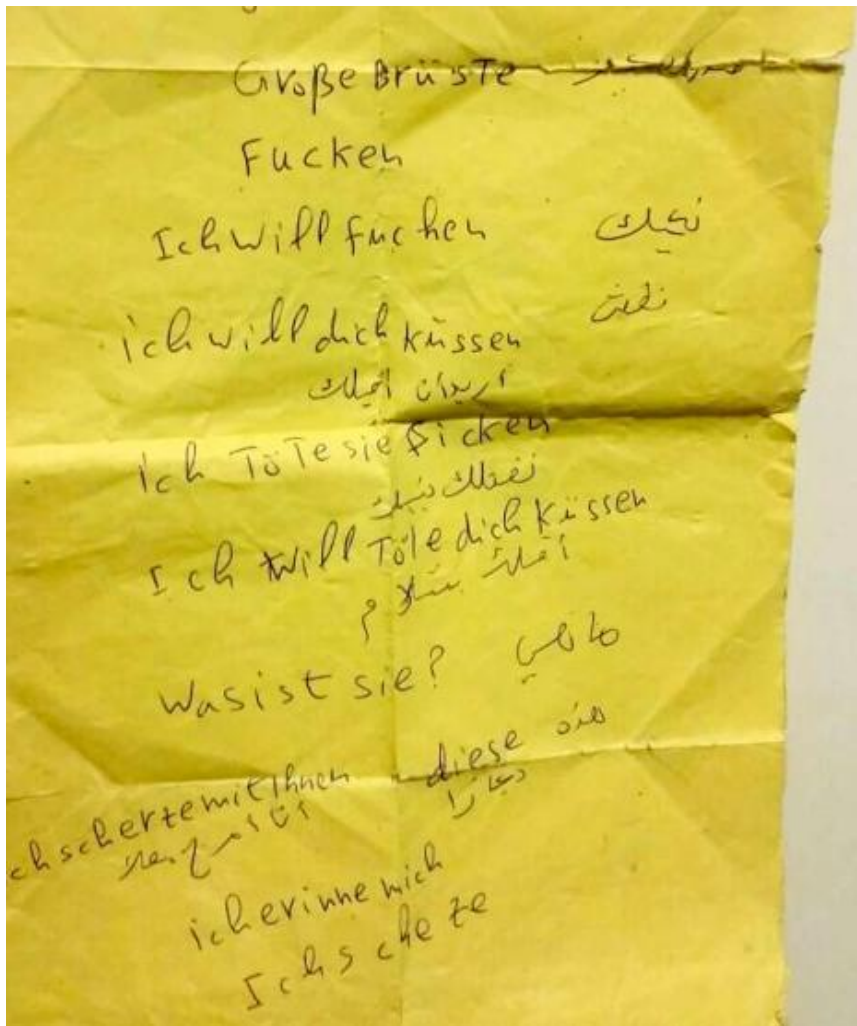 Große Brüste
Fucken
Ich will fuchen نيك
ich will dich küssen
اريد ان اقبلك
ich Töte sie ficken
نقتلك نيك
Ich will Töte dich Küssen
Was ist sie? ما هي
diese هذه
ch scherze mit Ihnen
انا امزح معك
ich erinne mich
Ich scheze